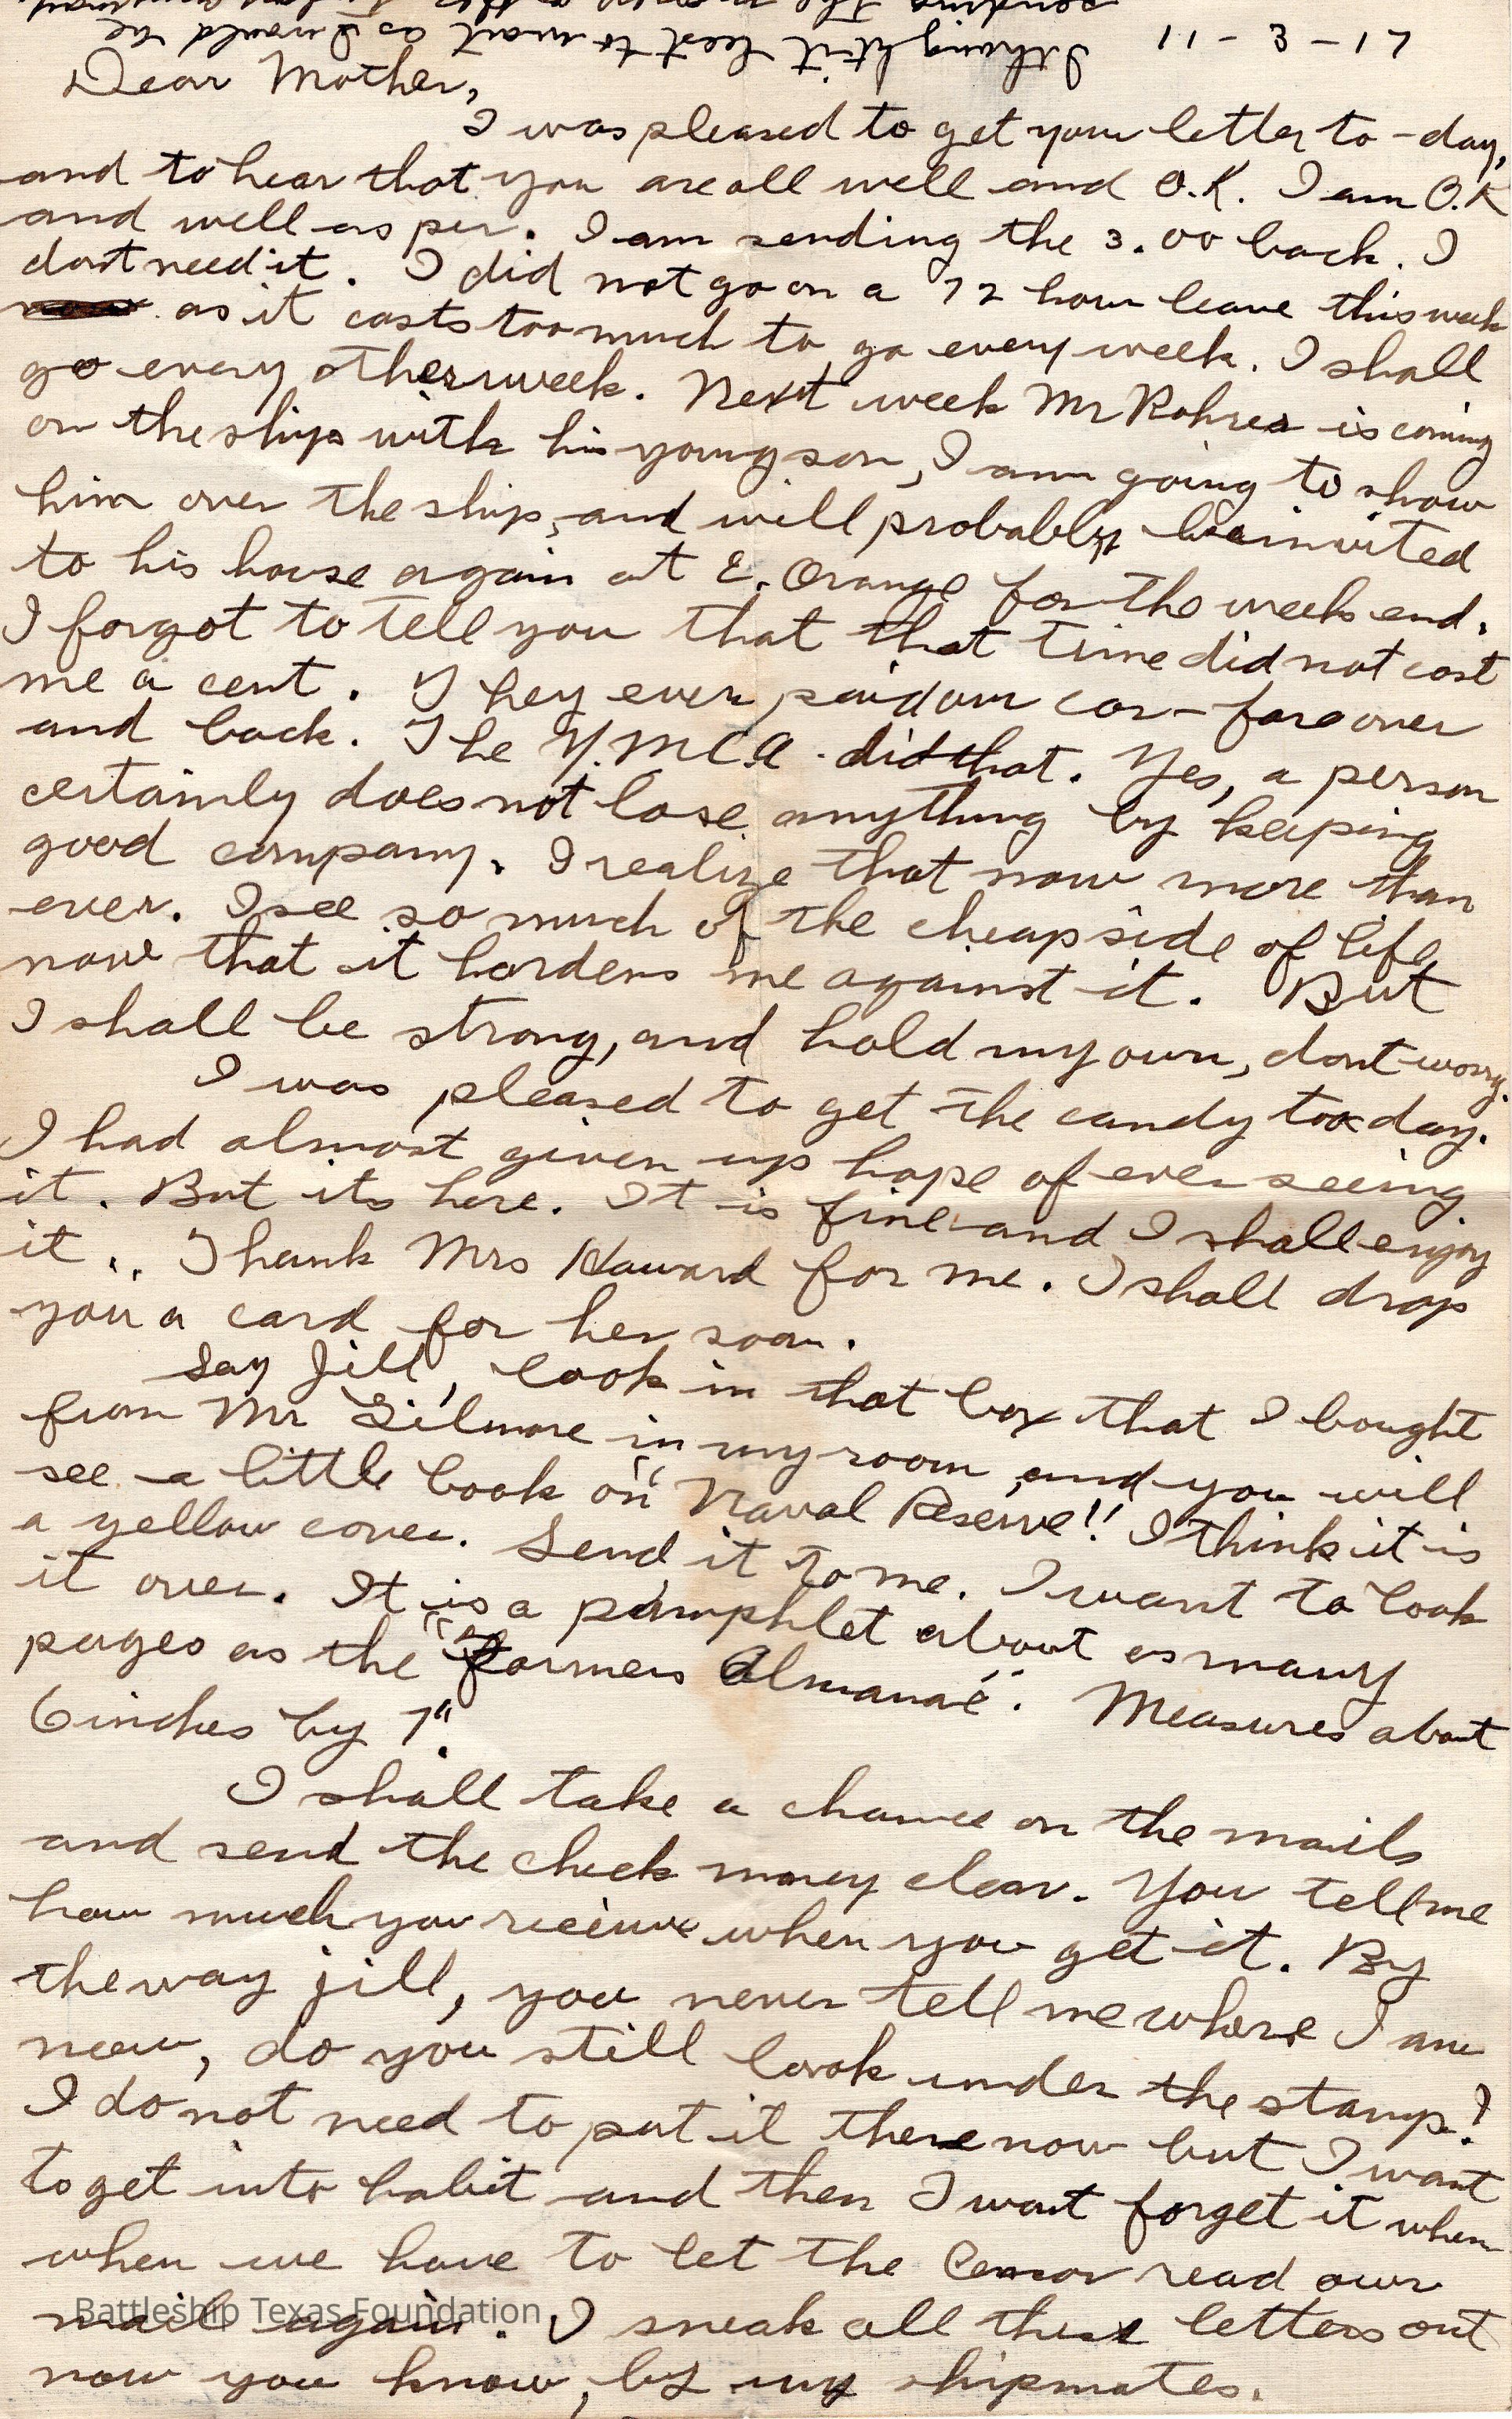 sending the
I thought it best to wait as I would be
11-3-17
Dear Mother,
I was pleased to get your letter to-day,
and to hear that you are all well and O.K. I am O.K
and well as per. I am sending the 3.00 back. I
dont need it. I did not go on a 72 hour leave this week
as it costs too much to go every week. I shall
go every other week. Next week Mr Rohrer is coming
on the ship with his young son, I am going to show
him over the ship, and will probably be invited
to his house again at E. Orange for the week end.
I forgot to tell you that that time did not cost
me a cent. They even paid our car-fare over
and back. The Y.M.C.A. did that. Yes, a person
certainly does not lose anything by keeping
good company. I realize that now more than
ever. I see so much of the cheap side of life
now that it hardens me against it. But
I shall be strong, and hold my own, dont worry.
I was pleased to get the candy too day.
I had almost given up hope of ever seeing
it. But its here. It is fine and I shall enjoy
it.. Thank Mrs Howard for me. I shall drop
you a card for her soon.
Say Jill, look in that box that I bought
from Mr Gilmore in my room and you will
see a little book on "Naval Reserve!! I think it is
a yellow cover. Send it to me. I want to look
it over. It is a pamphlet about as many
pages as the "Farmers Almanac". Measures about
6 inches by 7".
I shall take a chance on the mails
and send the check money clear. You tell me
how much you recieve when you get it. By
the way jill, you never tell me where I am
now, do you still look under the stamp?
I do not need to put it there now but I want
to get into habit and then I wont forget it when
when we have to let the Censor read our
mail again. I sneak all these letters out
now you know, by my shipmates.
Battleship Texas Foundation